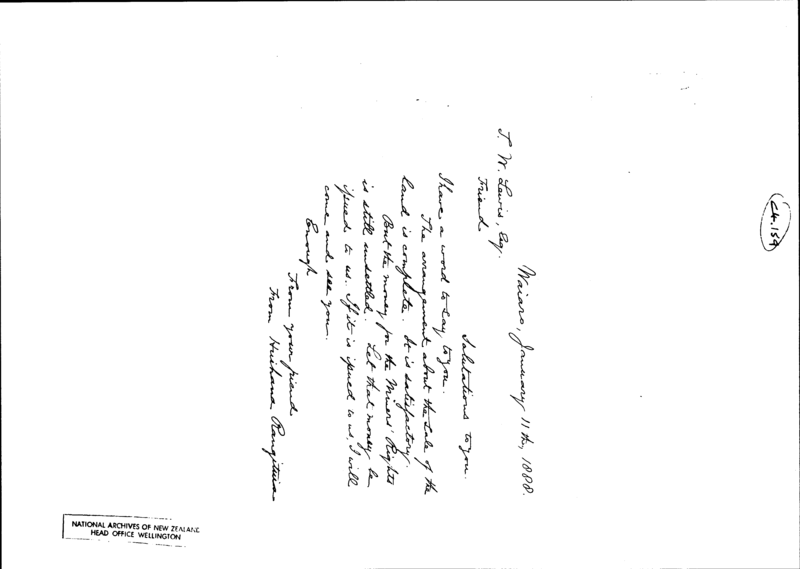 C4.154
Waiaro, January 11th, 1888.
T. W. Lewis, Esq.
Friend
Salutations to you.
I have a word to say to you.
The arrangement about the sale of the
land is complete. It is satisfactory.
But the money for the Miners' Rights
is still unsettled. Let that money be
issued to us. If it is issued to us, I will
come and see you.
Enough
From your friend
From Huihana Rangituia
NATIONAL ARCHIVES OF NEW ZEALAND
HEAD OFFICE WELLINGTON